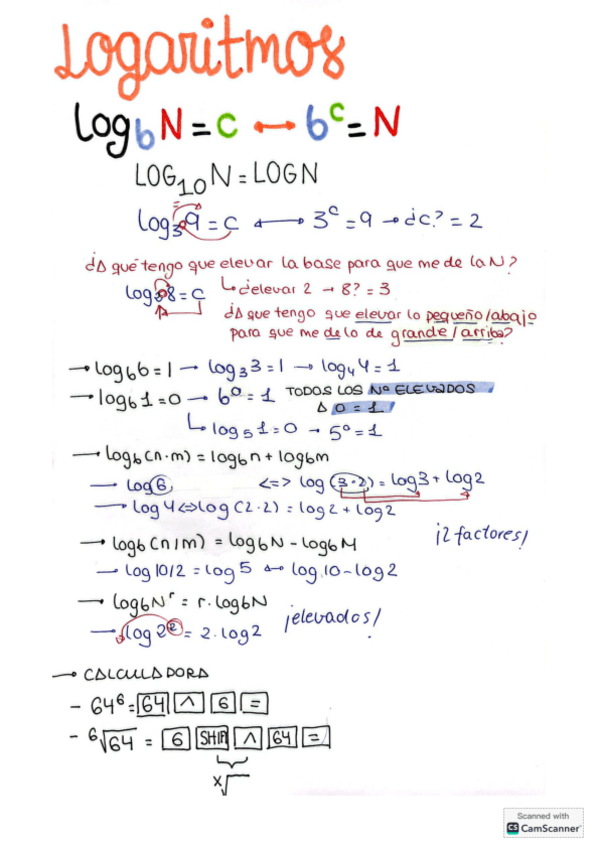 Logaritmos
log_b N = c ↔ b^c = N
LOG₁₀ N = LOG N
log₃ 9 = c ⟷ 3^c = 9 → ¿c? = 2
¿A qué tengo que elevar la base para que me de la N?
log₂ 8 = c ↳ ¿elevar 2 → 8? = 3
¿A que tengo que elevar lo pequeño/abajo
para que me de lo de grande/arriba?
→ log_b b = 1 → log₃ 3 = 1 → log₄ 4 = 1
→ log_b 1 = 0 → b⁰ = 1 TODOS LOS Nº ELEVADOS
A 0 = 1
↳ log₅ 1 = 0 → 5⁰ = 1
→ log_b (n·m) = log_b n + log_b m
→ log 6 <=> log (3·2) = log 3 + log 2
→ log 4 <=> log (2·2) = log 2 + log 2
¡2 factores!
→ log_b (n/m) = log_b N - log_b M
→ log 10/2 = log 5 ↔ log 10 - log 2
→ log_b N^r = r · log_b N
→ log 2² = 2 · log 2 ¡elevados!
→ CALCULADORA
- 64⁶ = 64 ∧ 6 =
- ⁶√64 = 6 SHIF ∧ 64 =
ˣ√
Scanned with
CS CamScanner